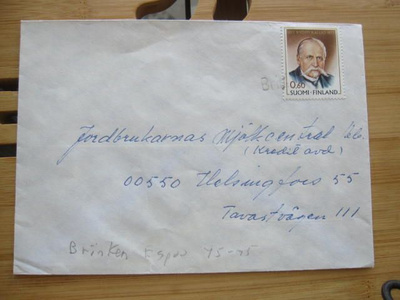 0,60
SUOMI-FINLAND
Jordbrukarnas Mjölkcentral
(Kredit avd)
00550 Helsingfors 55
Tavastvägen 111
Brinken Esbo 75-75